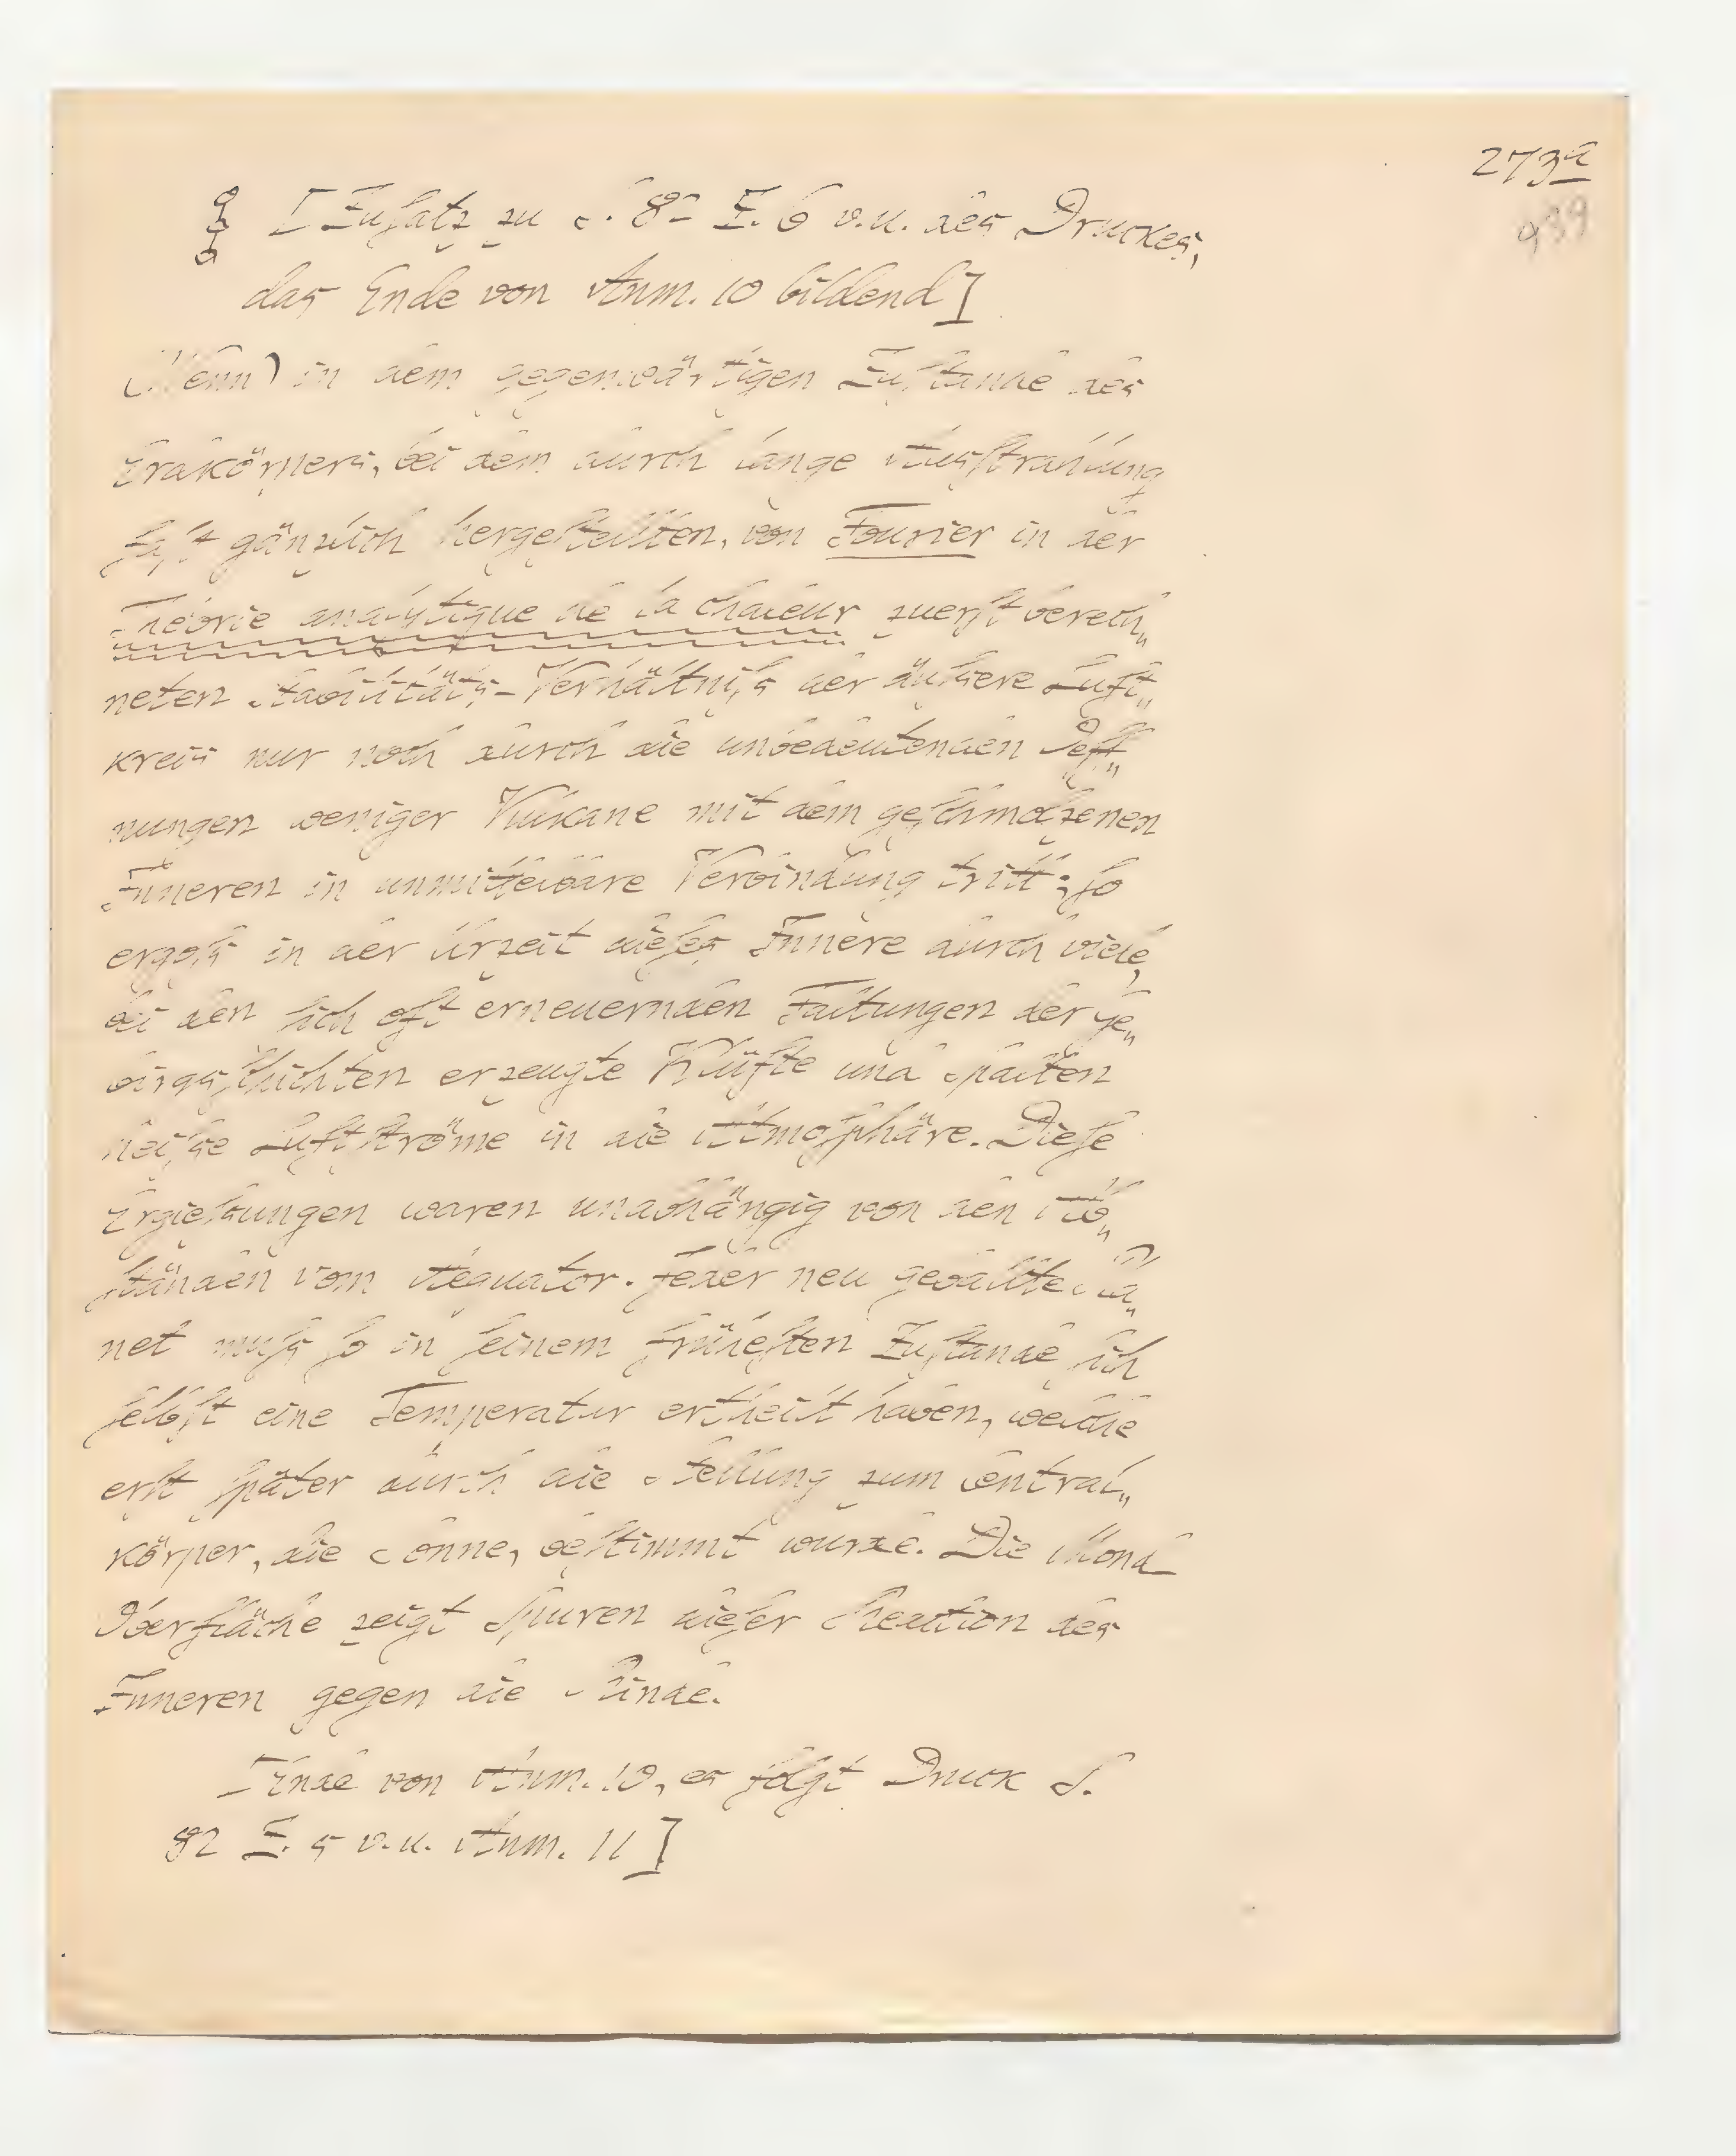 273a
989
[Zusatz zu S. 82 Z. 6 v.u. des Druckes,
das Ende von Anm. 10 bildend]
(Wenn) in dem gegenwärtigen Zustande des
Erdkörpers, bei dem durch lange Ausstrahlung
fast gänzlich hergestellten, von Fourier in der
Théorie analytique de la chaleur zuerst berech„
neten Stabilitäts-Verhältniß der äußere Luft„
kreis nur noch durch die unbedeutenden Oeff„
nungen weniger Vulkane mit dem geschmolzenen
Inneren in unmittelbare Verbindung tritt; so
ergoß in der Urzeit dieses Innere durch viele,
bei den sich oft erneuernden Faltungen der Ge„
birgsschichten erzeugte Klüfte und Spalten
heiße Luftströme in die Atmosphäre. Diese
Ergießungen waren unabhängig von den Ab„
ständen vom Aequator. Jeder neu geballte Pla„
net muß so in seinem frühesten Zustande sich
selbst eine Temperatur ertheilt haben, welche
erst später durch die Stellung zum Central„
körper, die Sonne, bestimmt wurde. Die Mond-
Oberfläche zeigt Spuren dieser Reaction des
Inneren gegen die Rinde.
[Ende von Anm. 10, es folgt Druck S.
82 Z. 5 v.u. Anm. 11]